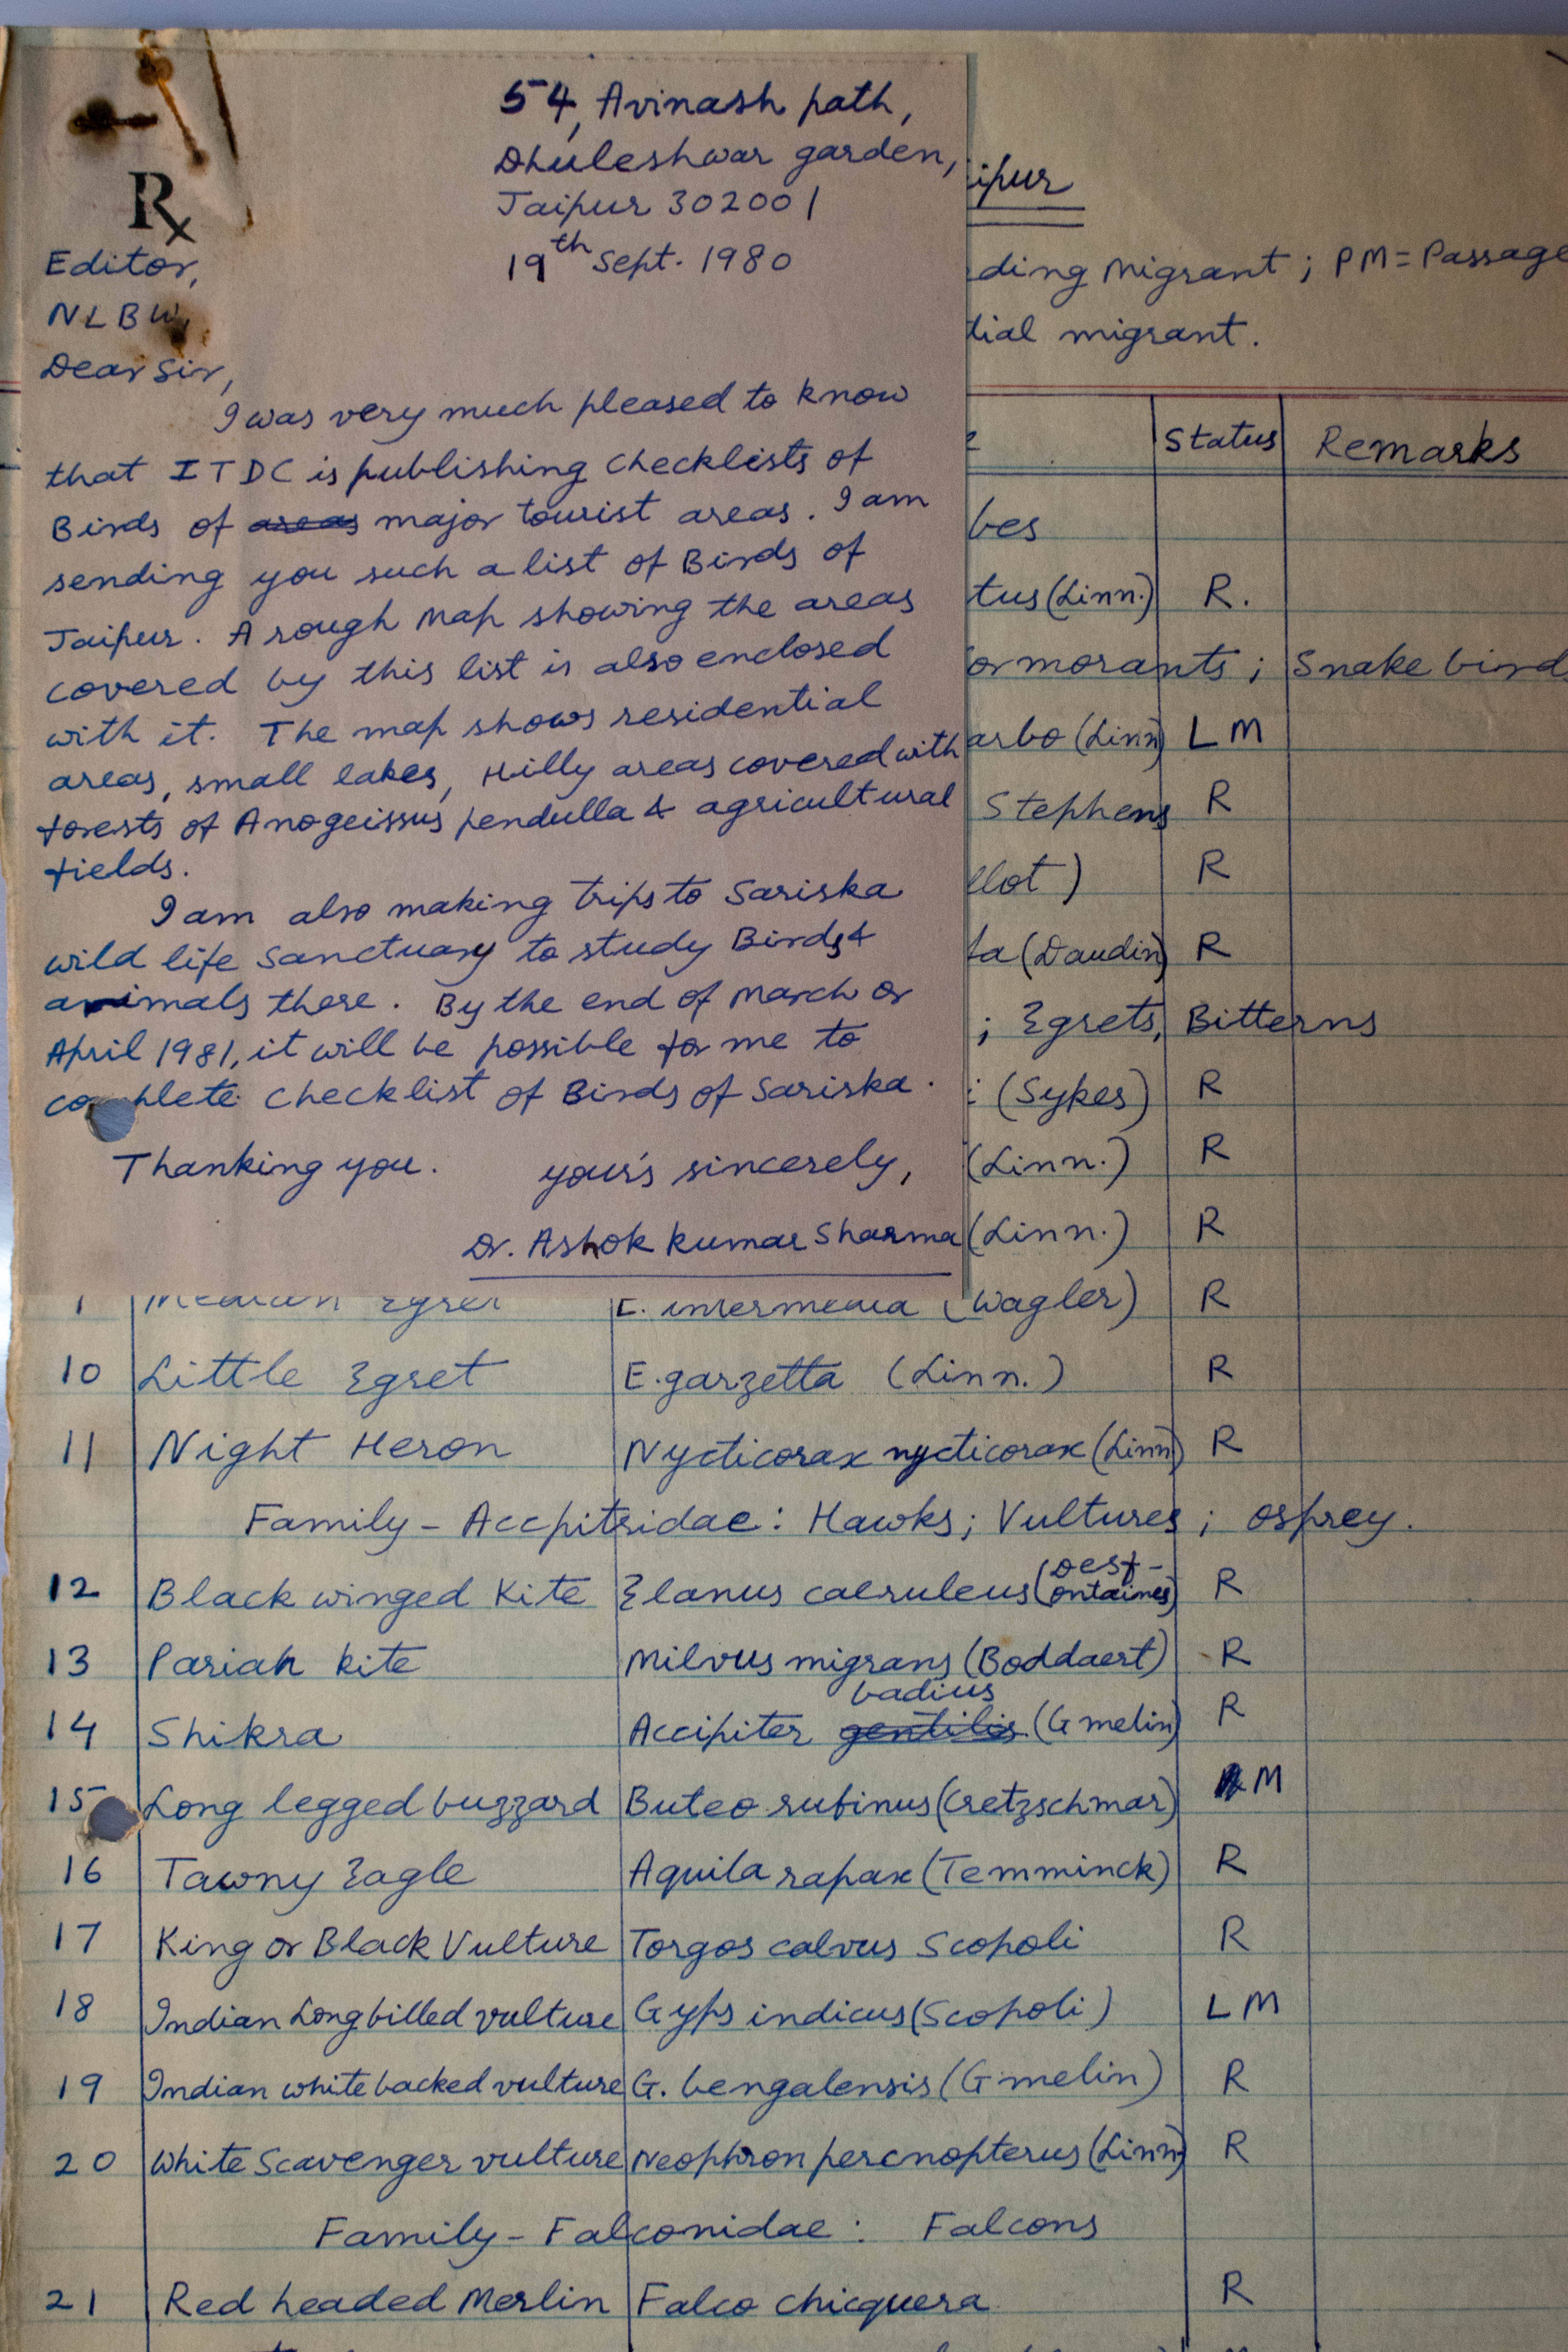 54, Avinash path,
Dhuleshwar garden,
Jaipur 302001
19th Sept. 1980
Rx
Editor,
NLBW,
Dear Sir,
I was very much pleased to know
that ITDC is publishing checklists of
Birds of areas major tourist areas. I am
sending you such a list of Birds of
Jaipur. A rough map showing the areas
covered by this list is also enclosed
with it. The map shows residential
areas, small lakes, Hilly areas covered with
forests of Anogeissus pendulla & agricultural
fields.
I am also making trips to Sariska
wild life Sanctuary to study Birds &
animals there. By the end of March or
April 1981, it will be possible for me to
complete checklist of Birds of Sariska.
Thanking you. your's sincerely,
Dr. Ashok Kumar Sharma
ipur
ding migrant; PM=Passage
tial migrant.
Status Remarks
bes
tus (Linn.) R.
ormorants; Snake bird
arbo (Linn) LM
Stephens R
llot) R
ta (Daudin) R
; Egrets, Bitterns
i (Sykes) R
(Linn.) R
(Linn.) R
Median Egret E. intermedia (Wagler) R
10 Little Egret E. garzetta (Linn.) R
11 Night Heron Nycticorax nycticorax (Linn) R
Family - Accpitridae: Hawks; Vultures; Osprey.
12 Black winged Kite Elanus caeruleus (Desf-ontaines) R
13 Pariah Kite Milvus migrans (Boddaert) R
14 Shikra Accipiter gentilis badius (Gmelin) R
15 Long legged buzzard Buteo rufinus (Cretzschmar) M
16 Tawny Eagle Aquila rapax (Temminck) R
17 King or Black Vulture Torgos calvus Scopoli R
18 Indian Longbilled vulture Gyps indicus (Scopoli) LM
19 Indian white backed vulture G. bengalensis (Gmelin) R
20 White Scavenger vulture Neophron percnopterus (Linn) R
Family - Falconidae: Falcons
21 Red headed Merlin Falco chicquera R